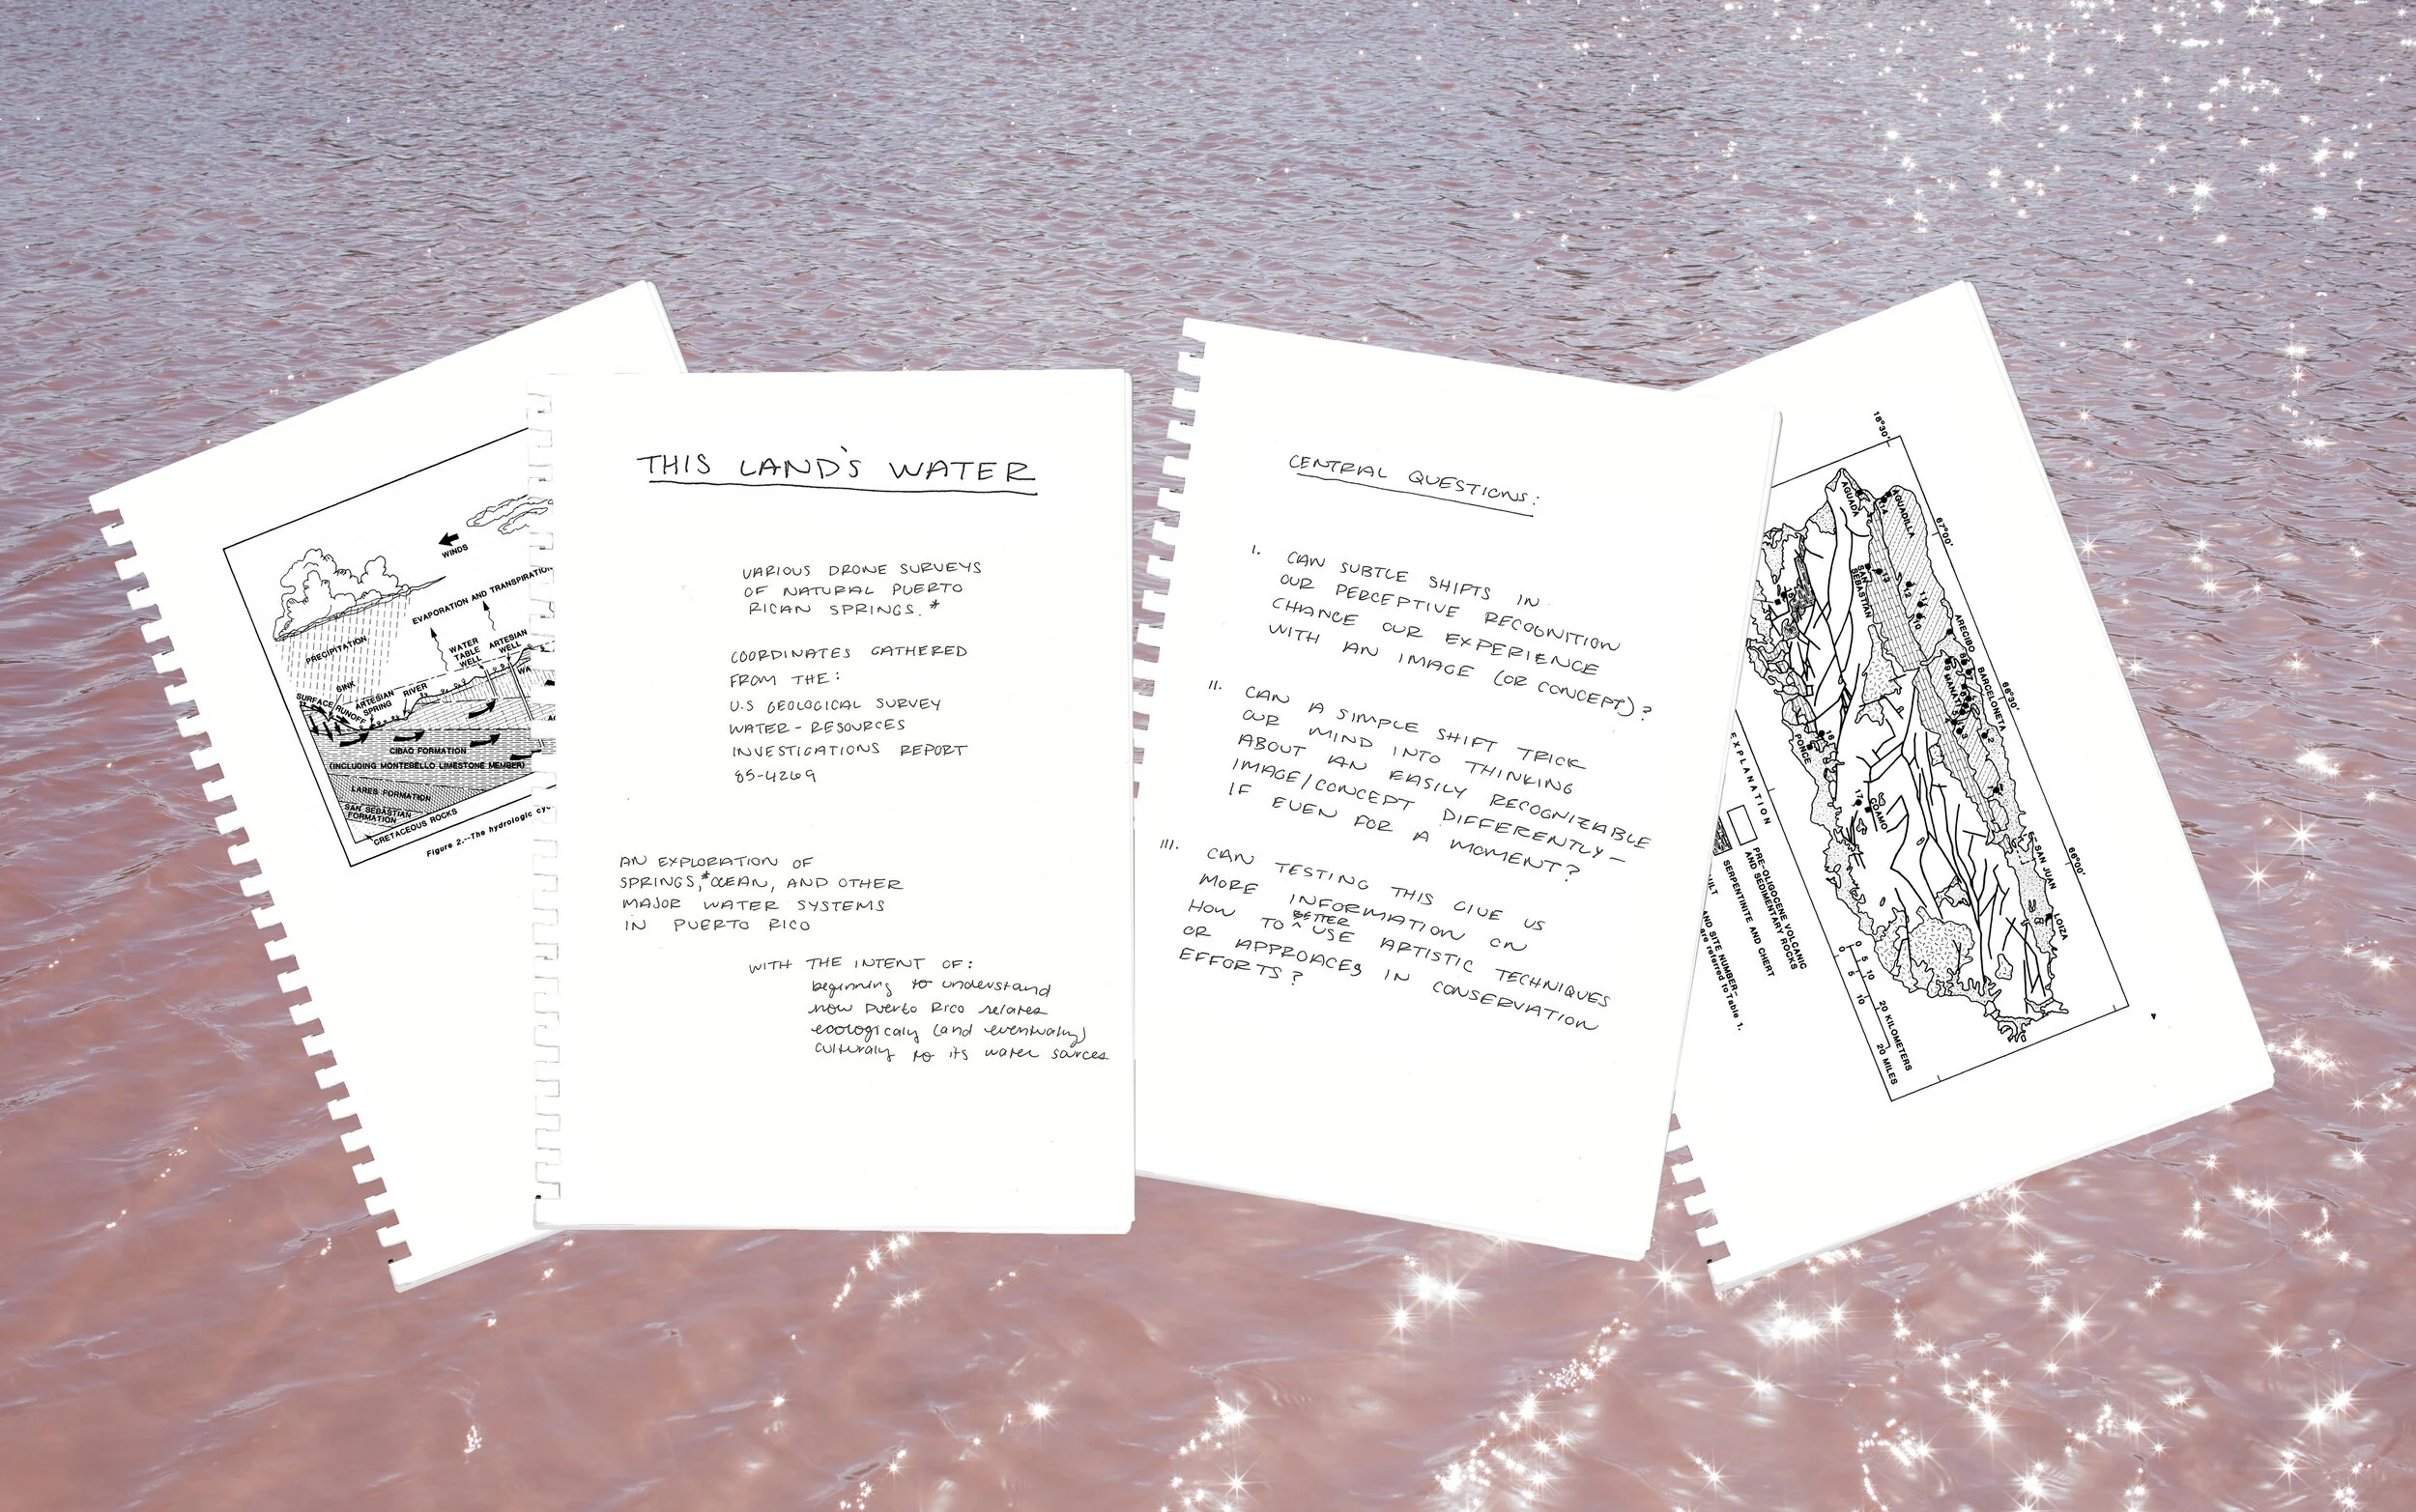 WINDS
EVAPORATION AND TRANSPIRATION
PRECIPITATION
WATER
TABLE
WELL
ARTESIAN
WELL
WA
SINK
SURFACE RUNOFF
ARTESIAN
SPRING
RIVER
CIBAO FORMATION
(INCLUDING MONTEBELLO LIMESTONE MEMBER)
LARES FORMATION
SAN SEBASTIAN
FORMATION
CRETACEOUS ROCKS
Figure 2.--The hydrologic cy
THIS LAND'S WATER
VARIOUS DRONE SURVEYS
OF NATURAL PUERTO
RICAN SPRINGS.*
COORDINATES GATHERED
FROM THE:
U.S GEOLOGICAL SURVEY
WATER-RESOURCES
INVESTIGATIONS REPORT
85-4269
AN EXPLORATION OF
SPRINGS,* OCEAN, AND OTHER
MAJOR WATER SYSTEMS
IN PUERTO RICO
WITH THE INTENT OF:
beginning to understand
how Puerto Rico relates
ecologicaly (and eventually)
culturaly to its water sources
CENTRAL QUESTIONS:
I. CAN SUBTLE SHIFTS IN
OUR PERCEPTIVE RECOGNITION
CHANGE OUR EXPERIENCE
WITH AN IMAGE (OR CONCEPT)?
II. CAN A SIMPLE SHIFT TRICK
OUR MIND INTO THINKING
ABOUT AN EASILY RECOGNIZABLE
IMAGE/CONCEPT DIFFERENTLY—
IF EVEN FOR A MOMENT?
III. CAN TESTING THIS GIVE US
MORE INFORMATION ON
HOW TO BETTER USE ARTISTIC TECHNIQUES
OR APPROACES IN CONSERVATION
EFFORTS?
18°30'
67°00'
66°30'
66°00'
AGUADA
AGUADILLA
SAN
SEBASTIAN
ARECIBO
BARCELONETA
MANATI
PONCE
COAMO
SAN JUAN
LOIZA
EXPLANATION
PRE-OLIGOCENE VOLCANIC
AND SEDIMENTARY ROCKS
SERPENTINITE AND CHERT
ULT
AND SITE NUMBER--
are referred to Table 1.
0 5 10 20 KILOMETERS
0 5 10 20 MILES